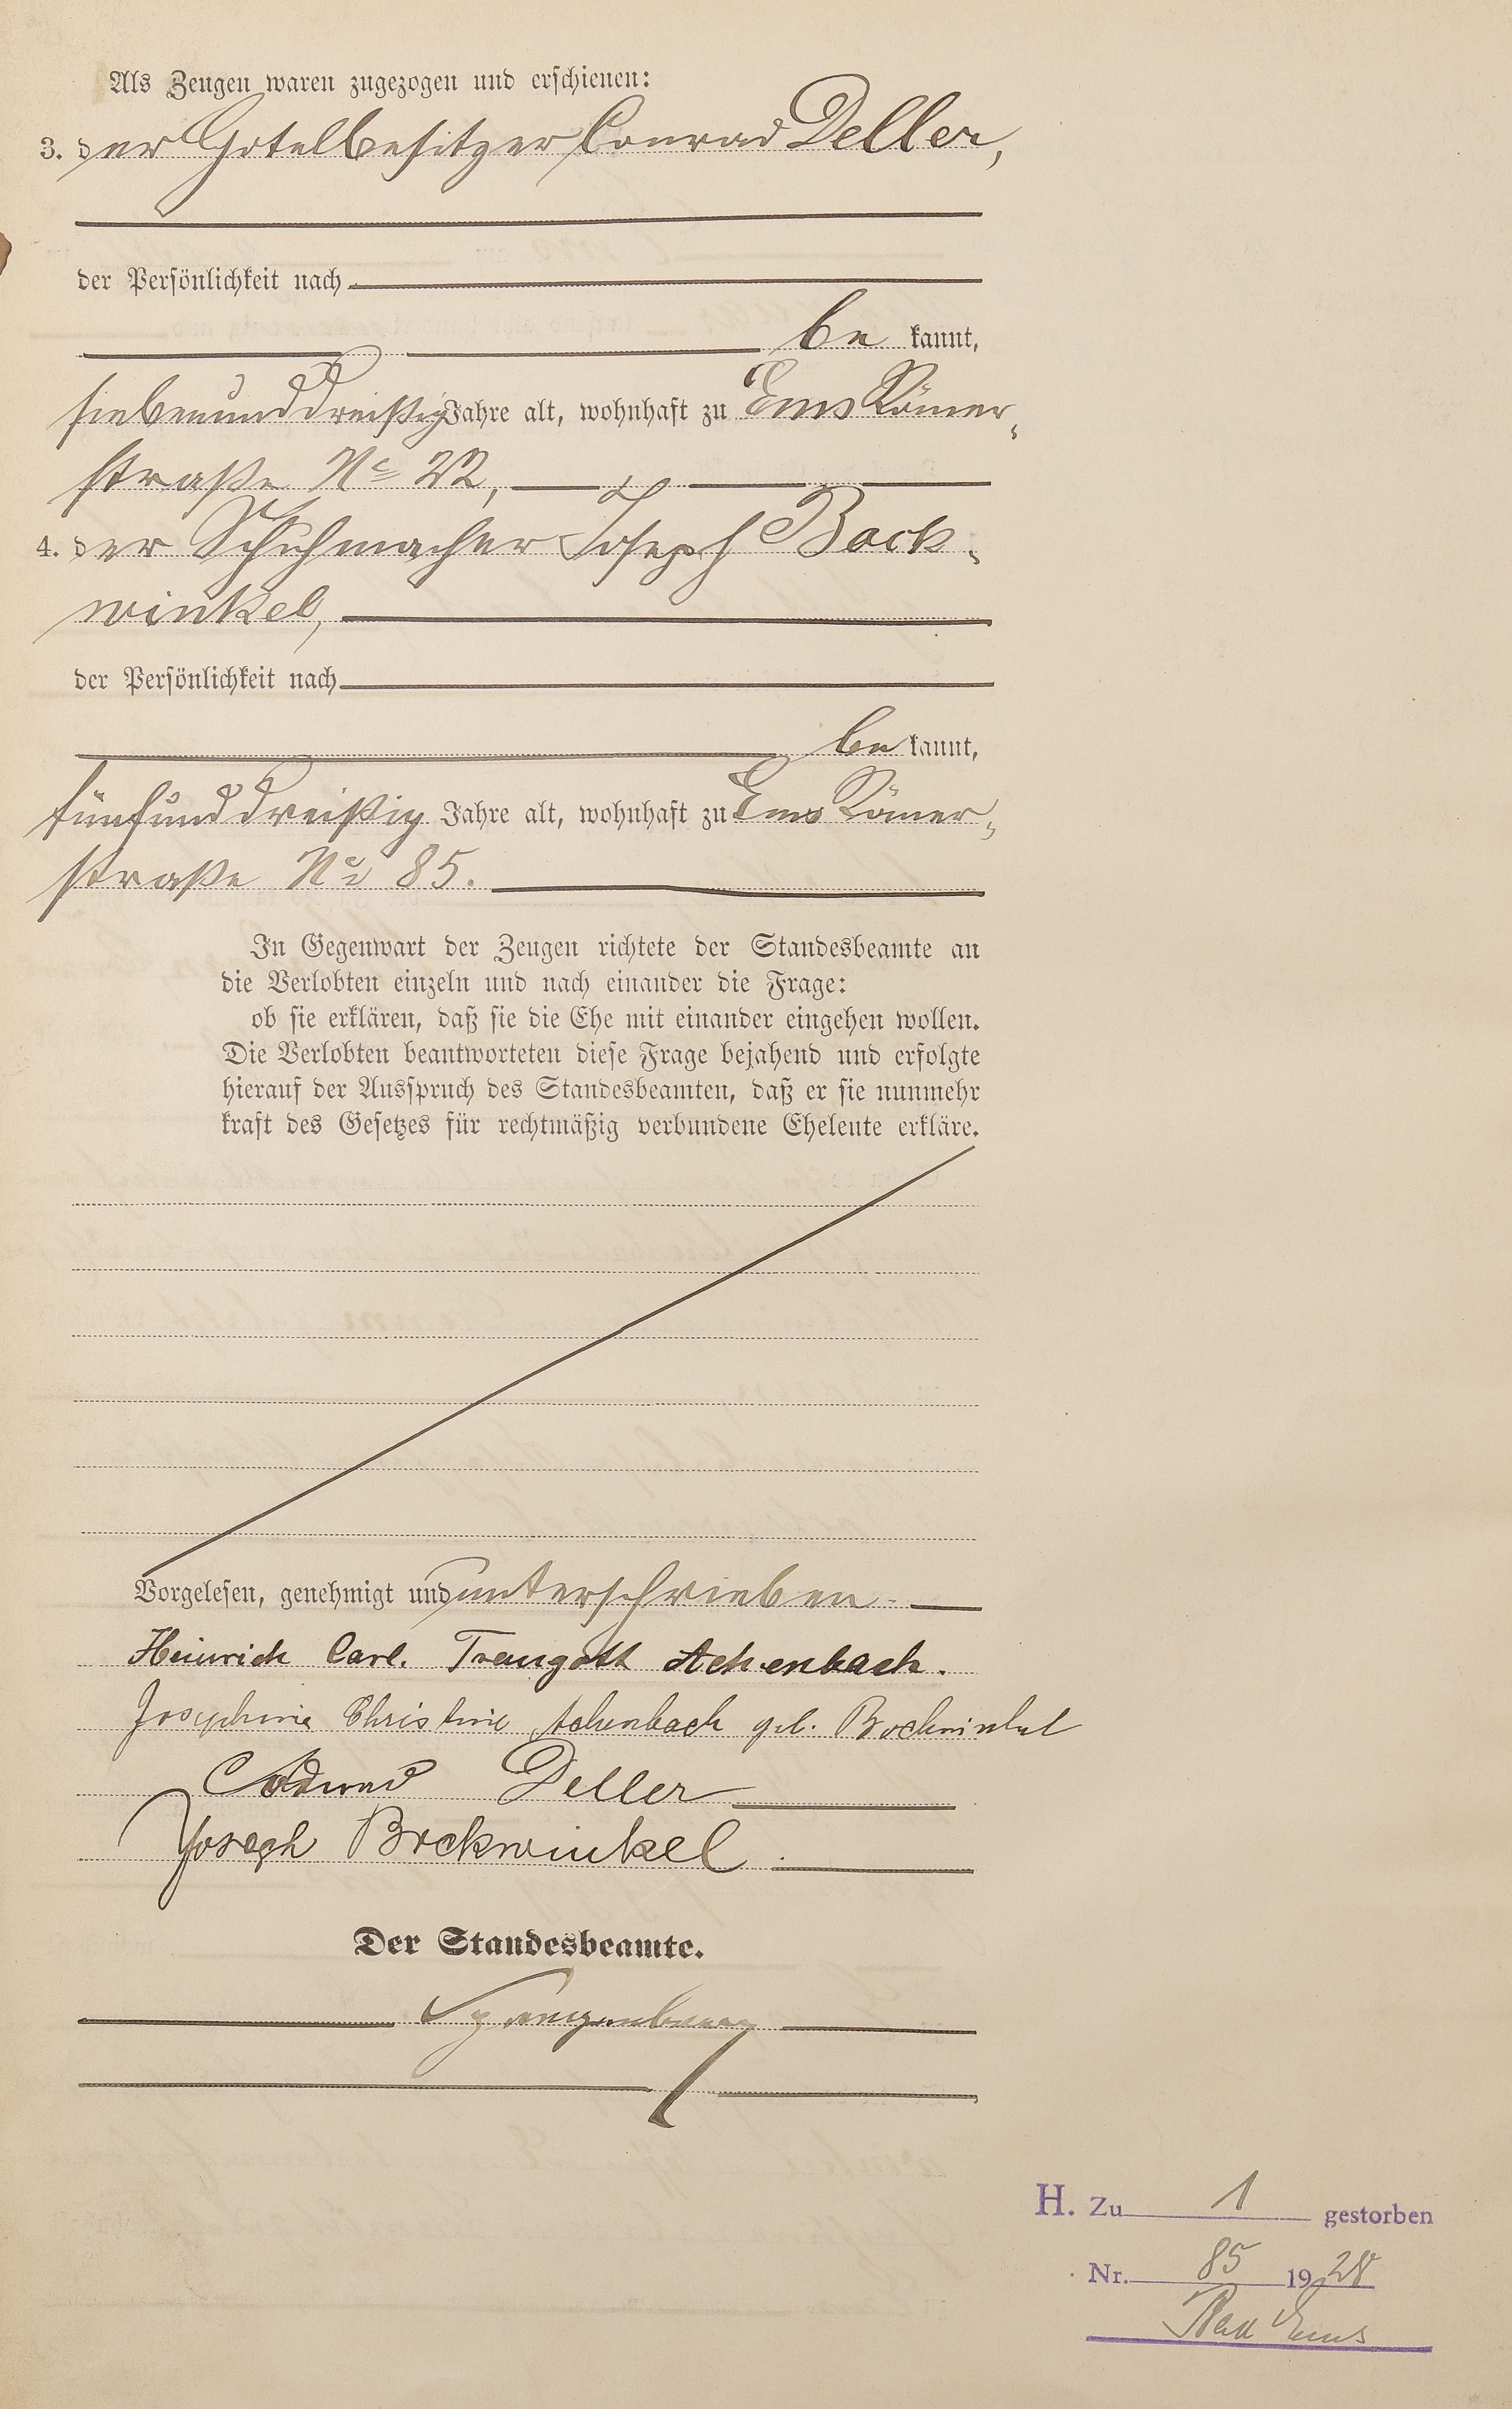 Als Zeugen waren zugezogen und erschienen:
3. der Hotelbesitzer Conrad Deller,
der Persönlichkeit nach
be kannt,
siebenunddreißig Jahre alt, wohnhaft zu Ems Römer-
straße No 22,
4. der Schuhmacher Joseph Bock-
winkel,
der Persönlichkeit nach
be kannt,
fünfunddreißig Jahre alt, wohnhaft zu Ems Römer-
straße No 85.
In Gegenwart der Zeugen richtete der Standesbeamte an
die Verlobten einzeln und nach einander die Frage:
ob sie erklären, daß sie die Ehe mit einander eingehen wollen.
Die Verlobten beantworteten diese Frage bejahend und erfolgte
hierauf der Ausspruch des Standesbeamten, daß er sie nunmehr
kraft des Gesetzes für rechtmäßig verbundene Eheleute erkläre.
Vorgelesen, genehmigt und unterschrieben
Heinrich Carl. Traugott Achenbach.
Josephine Christine Achenbach geb. Bockwinkel
Deller
Joseph Bockwinkel
Der Standesbeamte.
Spangenberg
H. Zu 1 gestorben
Nr. 85 1928
Bad Ems